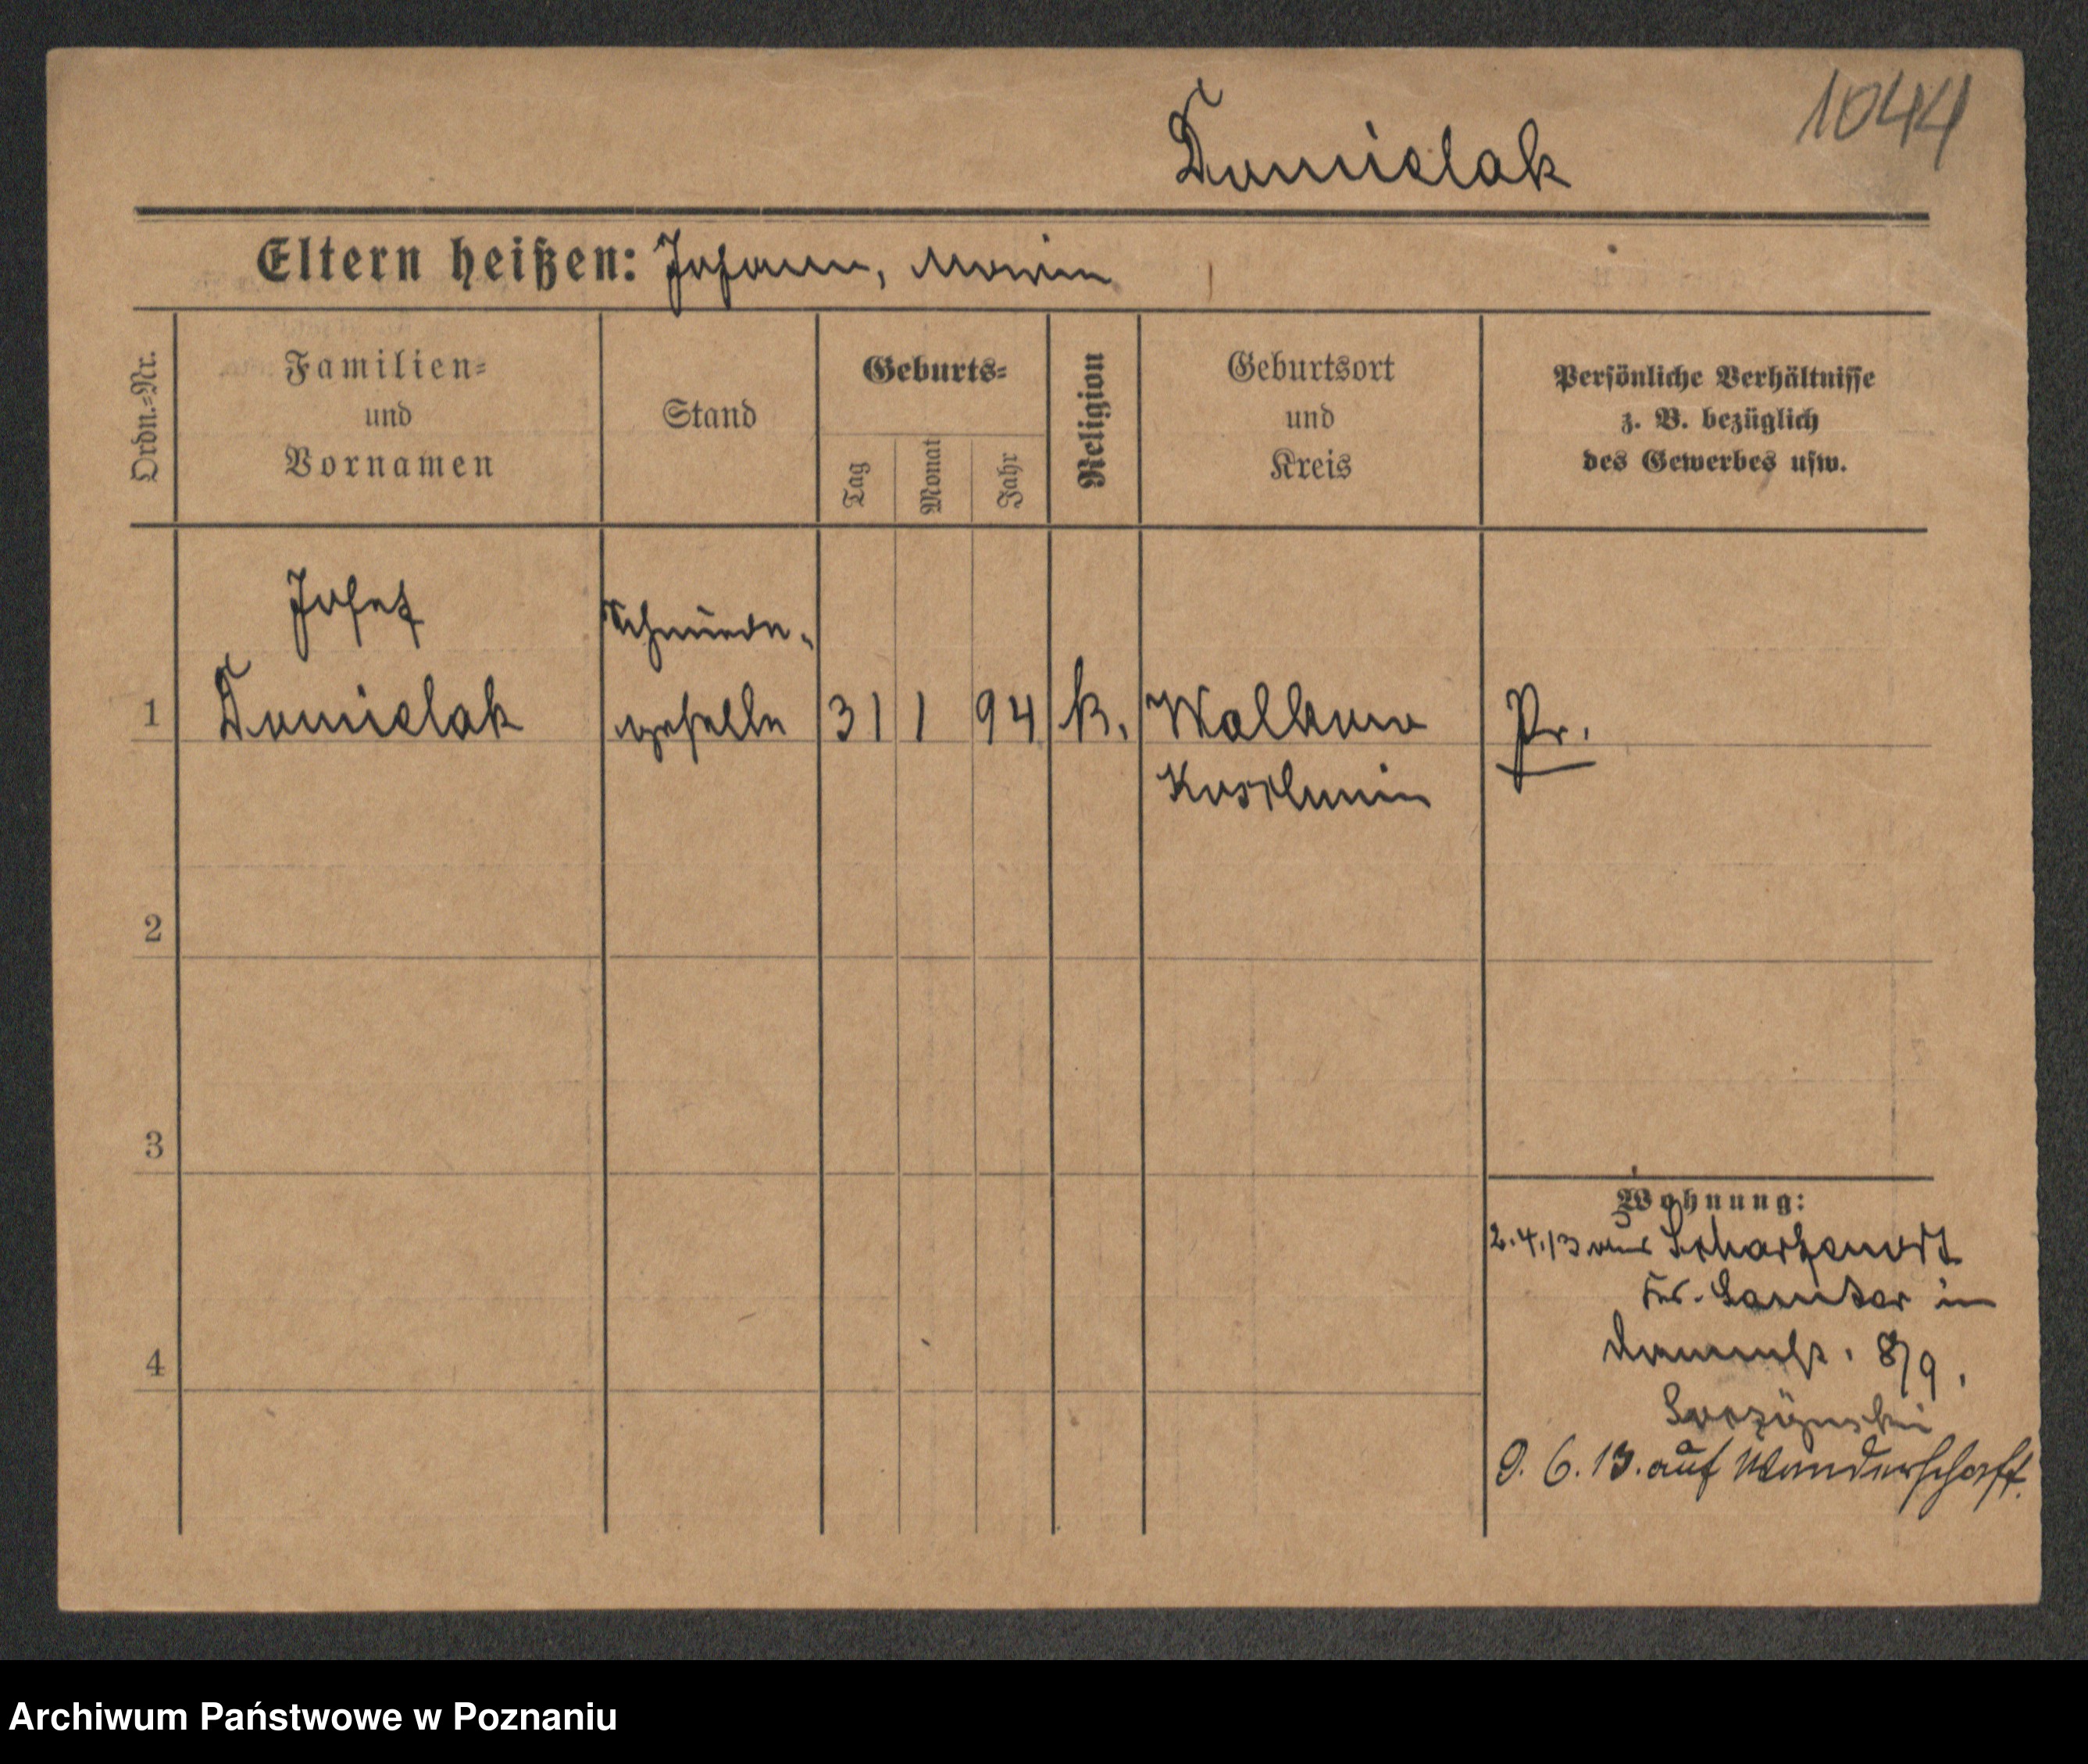 1044
Domielak
Eltern heißen: Johann, Maria
Ordn.=Nr.
Familien=
und
Vornamen
Stand
Geburts=
Tag
Monat
Jahr
Religion
Geburtsort
und
Kreis
Persönliche Verhältnisse
z. B. bezüglich
des Gewerbes usw.
Josef
Schmiede-
1 Domielak geselle 31 1 94 k. Walkow Pr.
Koschmin
2
3
4
Wohnung:
2.4.13 aus Scharfenort
Kr. Samter in
8/9.
9. 6. 13. auf Wanderschaft.
Archiwum Państwowe w Poznaniu